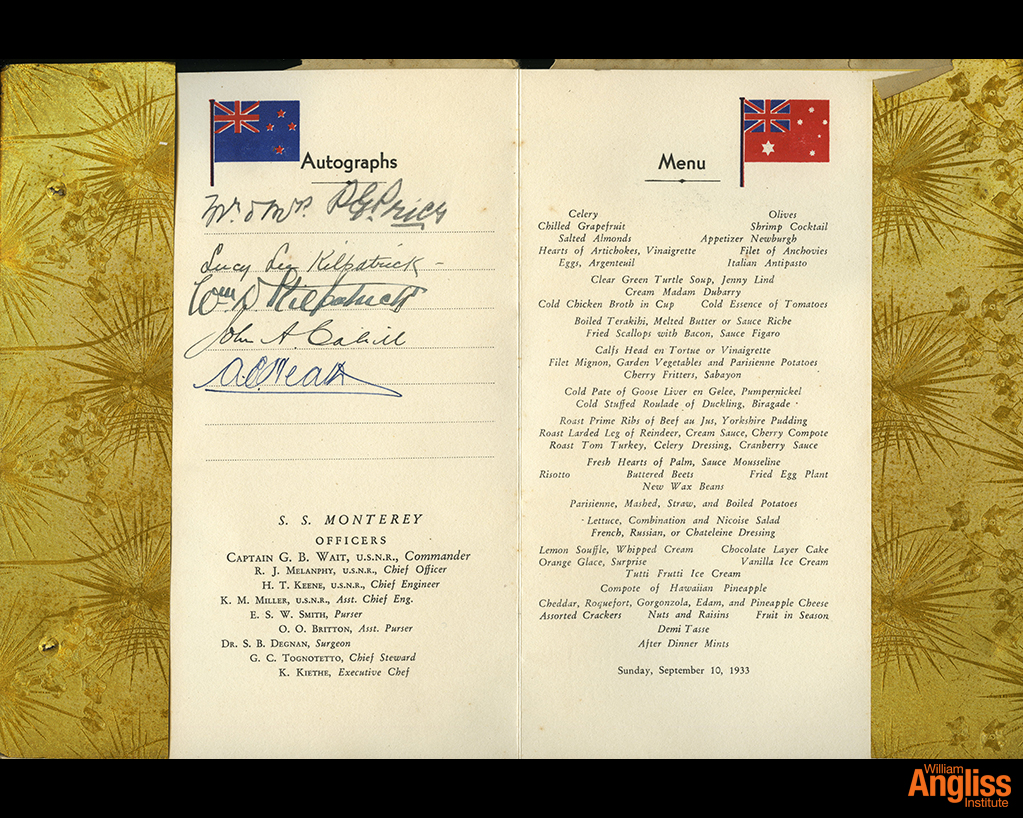 Autographs
Mr. & Mrs. P.G. Price
Lucy Lee Kilpatrick
Wm D. Kilpatrick
John A. Cahill
S. S. MONTEREY
OFFICERS
CAPTAIN G. B. WAIT, U.S.N.R., Commander
R. J. MELANPHY, U.S.N.R., Chief Officer
H. T. KEENE, U.S.N.R., Chief Engineer
K. M. MILLER, U.S.N.R., Asst. Chief Eng.
E. S. W. SMITH, Purser
O. O. BRITTON, Asst. Purser
DR. S. B. DEGNAN, Surgeon
G. C. TOGNOTETTO, Chief Steward
K. KIETHE, Executive Chef
Menu
Celery Olives
Chilled Grapefruit Shrimp Cocktail
Salted Almonds Appetizer Newburgh
Hearts of Artichokes, Vinaigrette Filet of Anchovies
Eggs, Argenteuil Italian Antipasto
Clear Green Turtle Soup, Jenny Lind
Cream Madam Dubarry
Cold Chicken Broth in Cup Cold Essence of Tomatoes
Boiled Terakihi, Melted Butter or Sauce Riche
Fried Scallops with Bacon, Sauce Figaro
Calfs Head en Tortue or Vinaigrette
Filet Mignon, Garden Vegetables and Parisienne Potatoes
Cherry Fritters, Sabayon
Cold Pate of Goose Liver en Gelee, Pumpernickel
Cold Stuffed Roulade of Duckling, Biragade
Roast Prime Ribs of Beef au Jus, Yorkshire Pudding
Roast Larded Leg of Reindeer, Cream Sauce, Cherry Compote
Roast Tom Turkey, Celery Dressing, Cranberry Sauce
Fresh Hearts of Palm, Sauce Mousseline
Risotto Buttered Beets Fried Egg Plant
New Wax Beans
Parisienne, Mashed, Straw, and Boiled Potatoes
Lettuce, Combination and Nicoise Salad
French, Russian, or Chateleine Dressing
Lemon Souffle, Whipped Cream Chocolate Layer Cake
Orange Glace, Surprise Vanilla Ice Cream
Tutti Frutti Ice Cream
Compote of Hawaiian Pineapple
Cheddar, Roquefort, Gorgonzola, Edam, and Pineapple Cheese
Assorted Crackers Nuts and Raisins Fruit in Season
Demi Tasse
After Dinner Mints
Sunday, September 10, 1933
William
Angliss
Institute